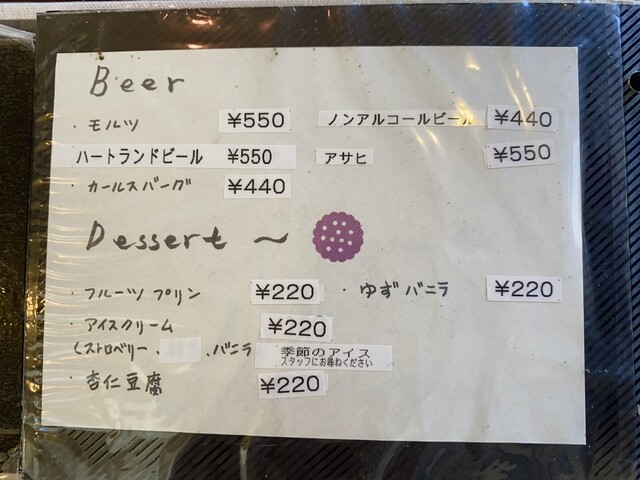 Beer
・モルツ ¥550 ノンアルコールビール ¥440
ハートランドビール ¥550 アサヒ ¥550
・カールスバーグ ¥440
Dessert ～
・フルーツプリン ¥220 ・ゆずバニラ ¥220
・アイスクリーム ¥220
(ストロベリー、 、バニラ 季節のアイス
スタッフにお尋ねください
・杏仁豆腐 ¥220